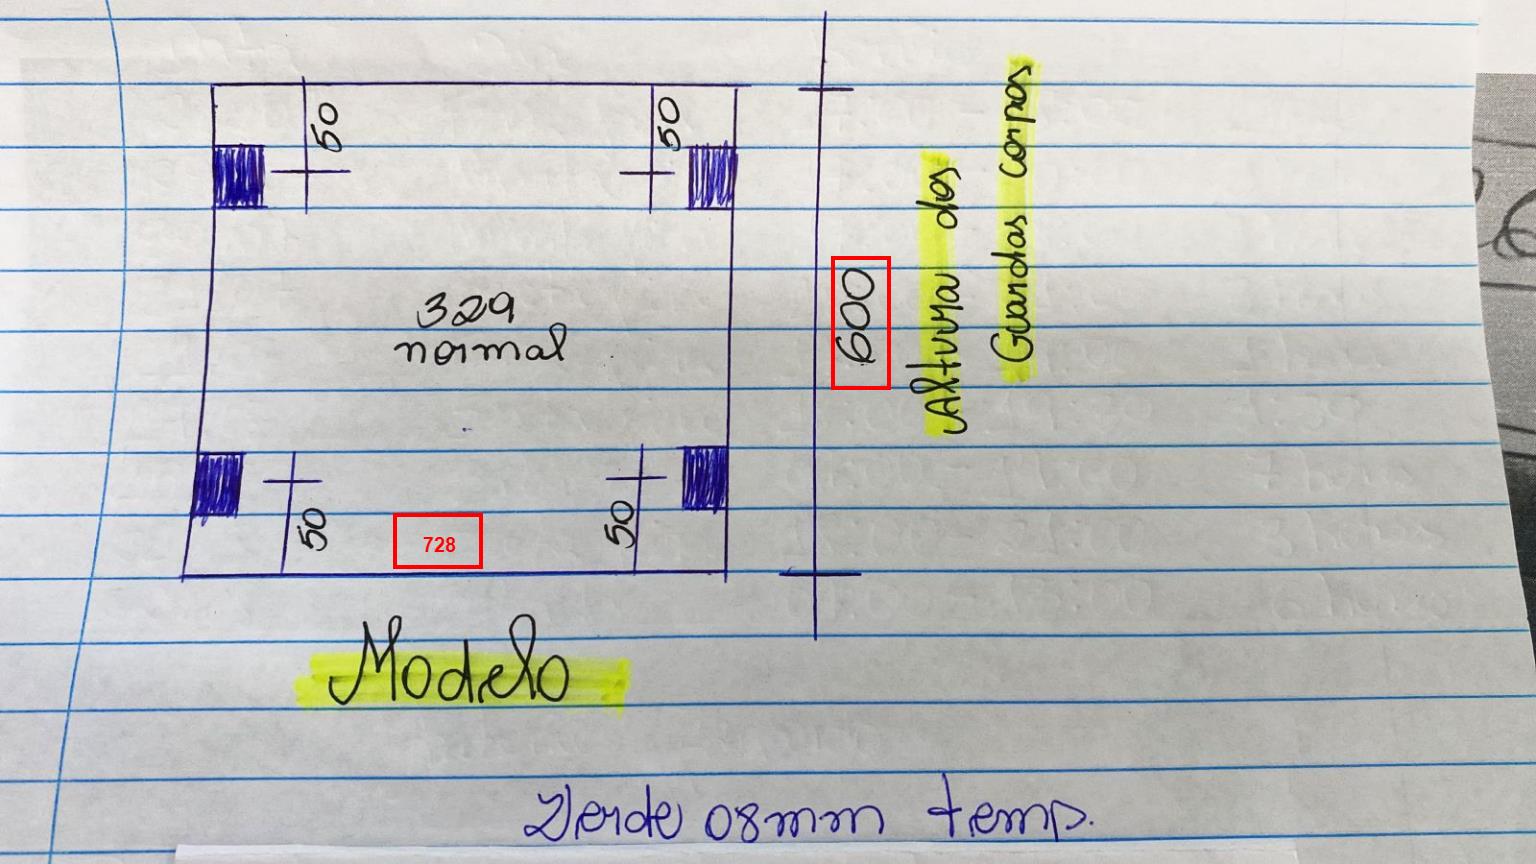 50
50
329
normal
600
Altura dos
Guardas corpos
50
50
728
Modelo
Verde 08mm temp.